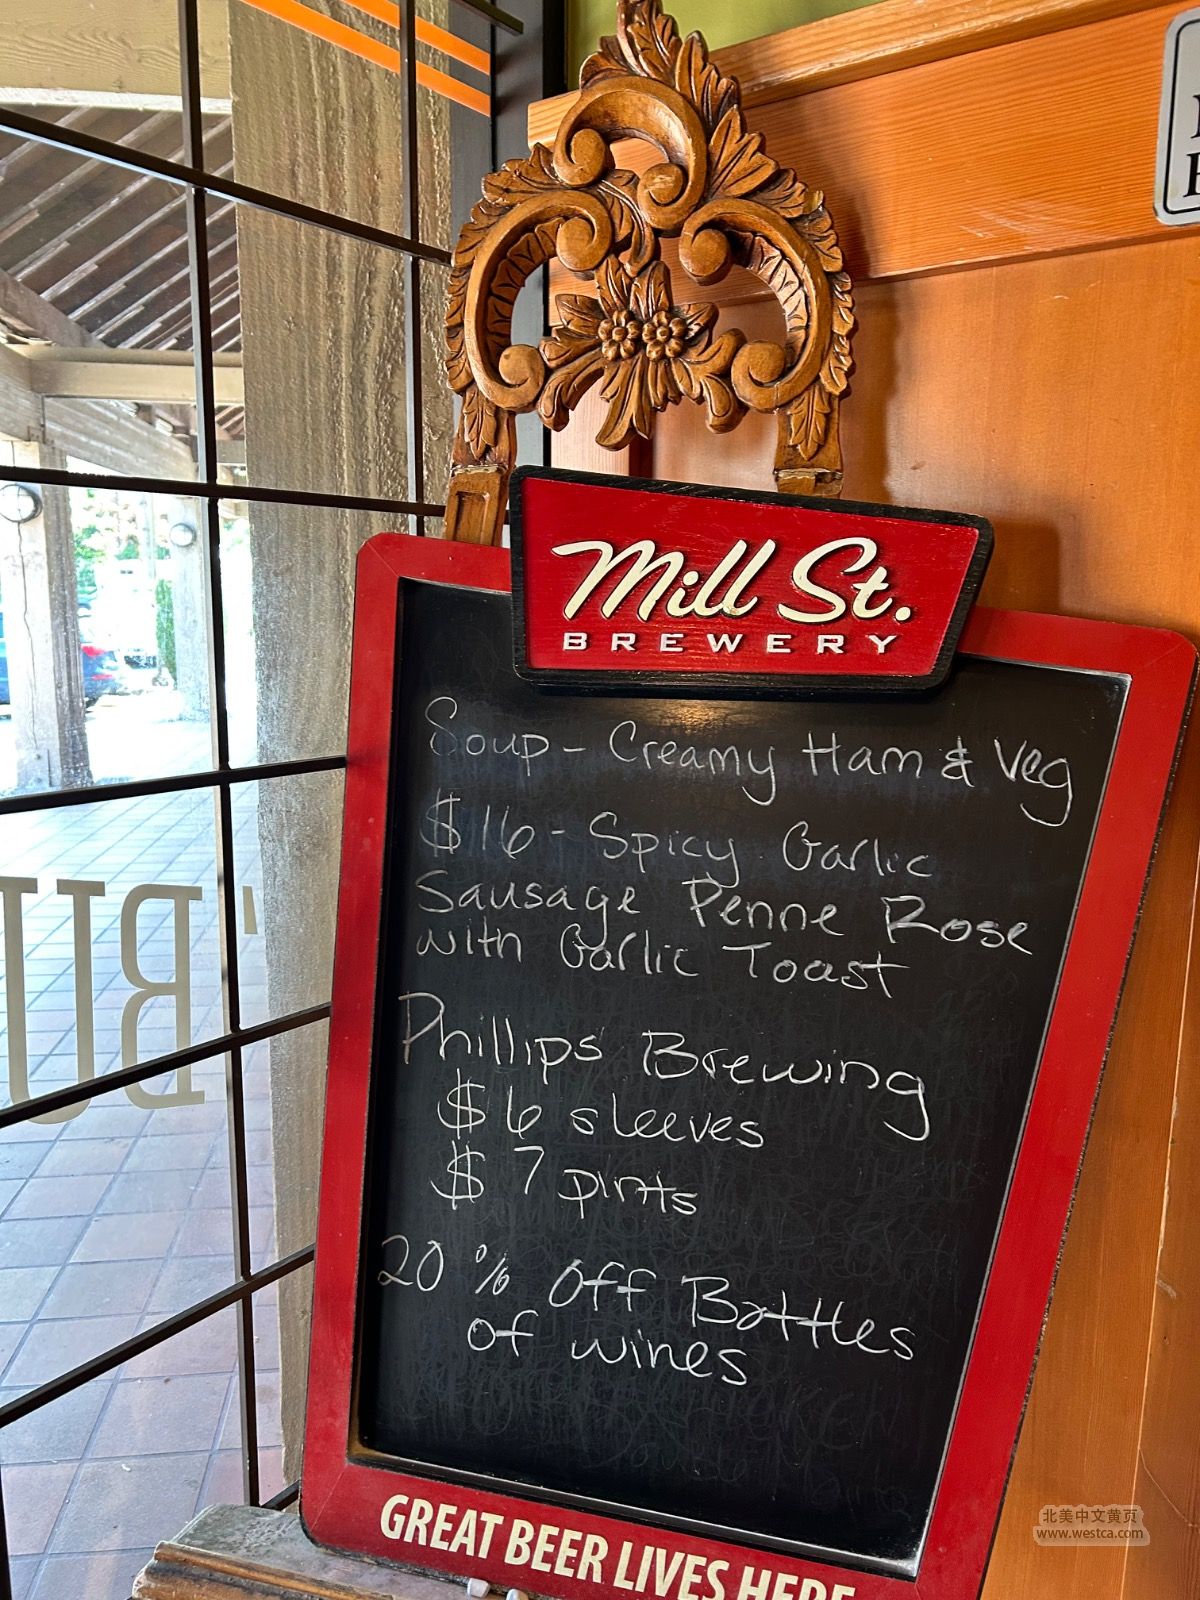 Mill St.
BREWERY
Soup - Creamy Ham & Veg
$16 - Spicy Garlic
Sausage Penne Rose
with Garlic Toast
Phillips Brewing
$6 sleeves
$7 pints
20% Off Bottles
of wines
GREAT BEER LIVES HERE
北美中文黄页
www.westca.com